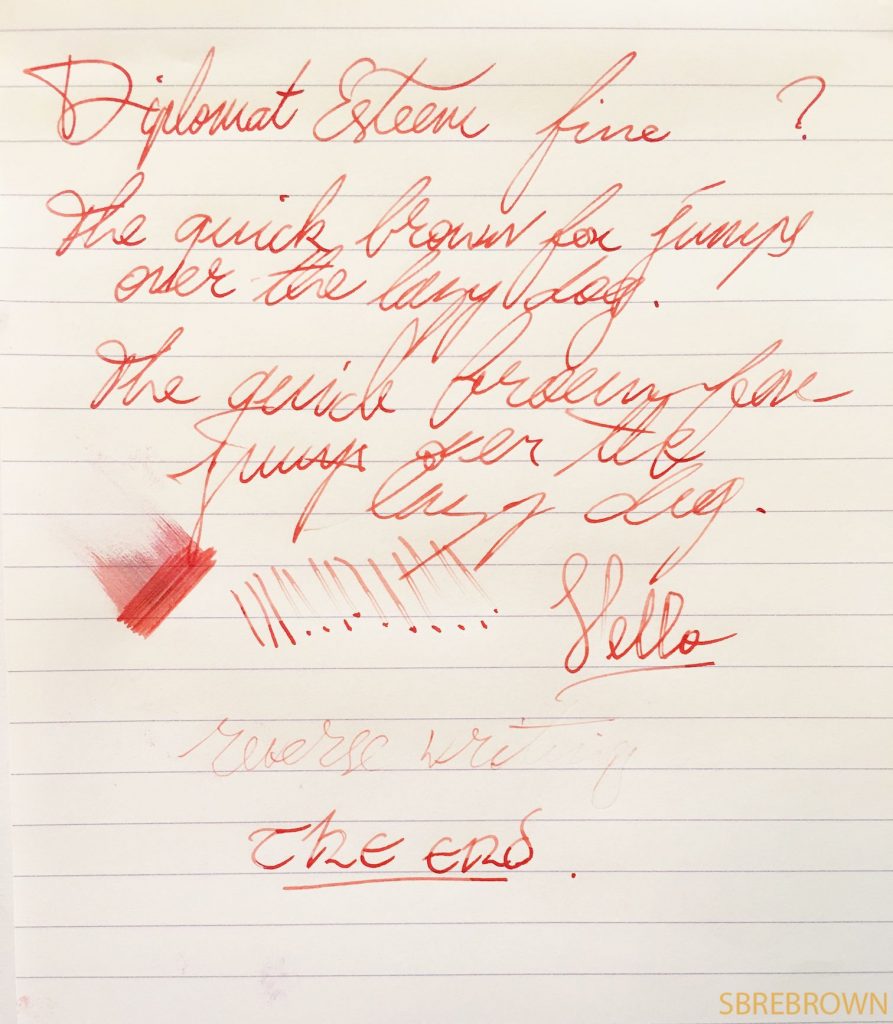 Diplomat Esteem fine ?
The quick brown fox jumps
over the lazy dog.
The quick brown fox
jumps over the
lazy dog.
Hello
reverse writing
The end.
SBREBROWN